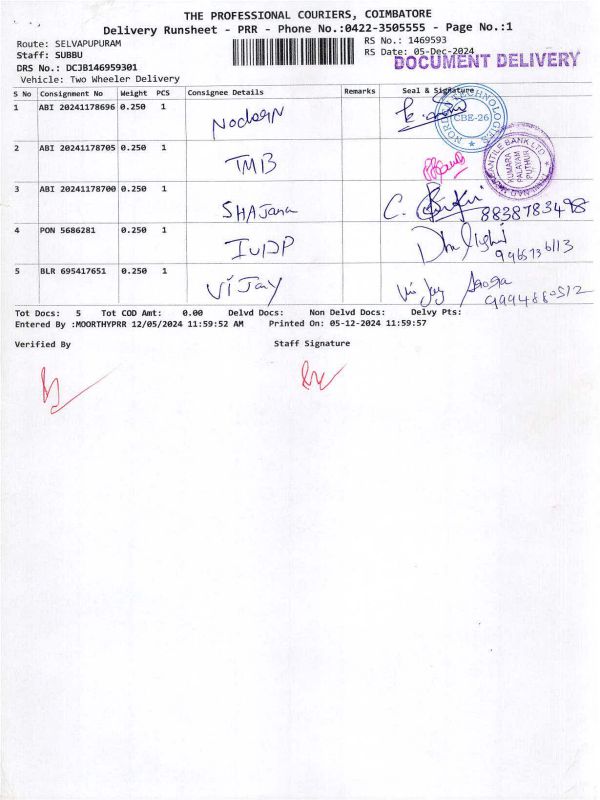 THE PROFESSIONAL COURIERS, COIMBATORE
Delivery Runsheet - PRR - Phone No.:0422-3505555 - Page No.:1
Route: SELVAPUPURAM
RS No.: 1469593
Staff: SUBBU
RS Date: 05-Dec-2024
DOCUMENT DELIVERY
DRS No.: DCJB146959301
Vehicle: Two Wheeler Delivery
S No Consignment No Weight PCS Consignee Details Remarks Seal & Signature
1 ABI 20241178696 0.250 1
CBE-26
2 ABI 20241178705 0.250 1 TMB
KUMARA PALAYAM PUTHUR
3 ABI 20241178700 0.250 1 SHAjana C. 8838783498
4 PON 5686281 0.250 1
5 BLR 695417651 0.250 1 Vijay
Tot Docs: 5 Tot COD Amt: 0.00 Delvd Docs: Non Delvd Docs: Delvy Pts:
Entered By :MOORTHYPRR 12/05/2024 11:59:52 AM Printed On: 05-12-2024 11:59:57
Verified By Staff Signature